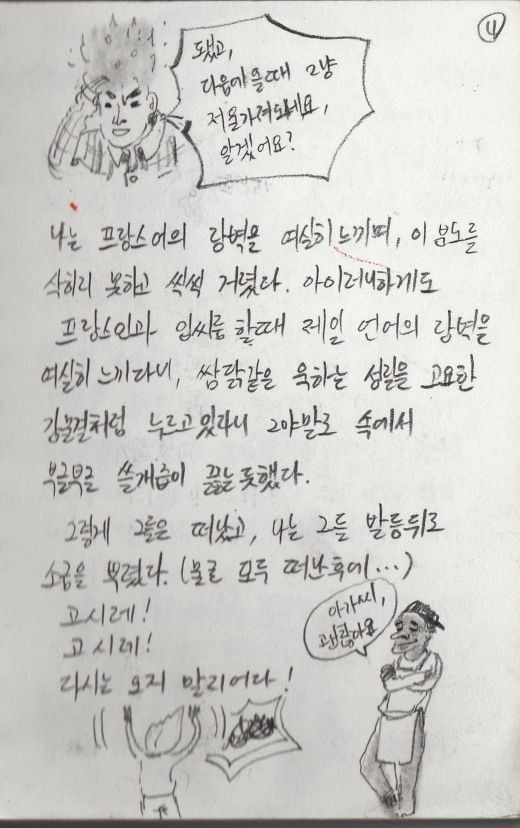 4
됐고,
다음에 올때 그냥
저울가져오세요,
알겠어요?
나는 프랑스어의 장벽을 여실히 느끼며, 이 분노를
삭히리 못하고 씩씩 거렸다. 아이러니하게도
프랑스인과 입씨름 할때 제일 언어의 장벽을
여실히 느끼다니, 쌈닭같은 욱하는 성릴을 고요한
강물결처럼 누르고 있자니 그야말로 속에서
부글부글 쓸개즙이 끓는 듯했다.
그렇게 그들은 떠났고, 나는 그들 발등뒤로
소금을 뿌렸다. (물론 모두 떠난후에...)
고시레!
고시레!
다시는 오지 말리어다!
아가씨,
괜찮아요